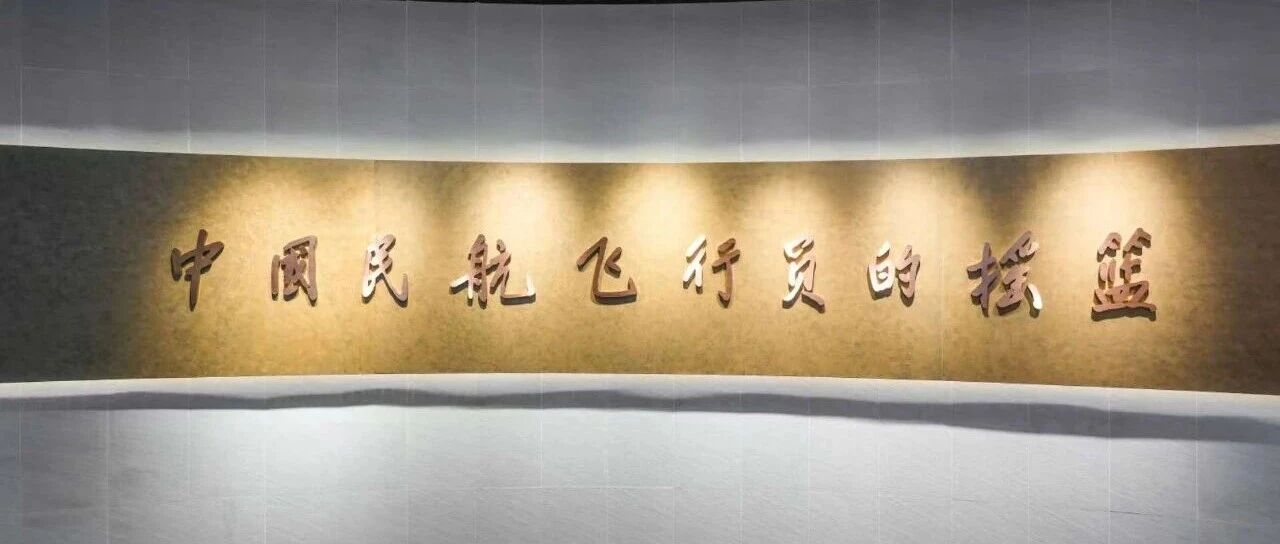 中國民航飞行员的摇篮